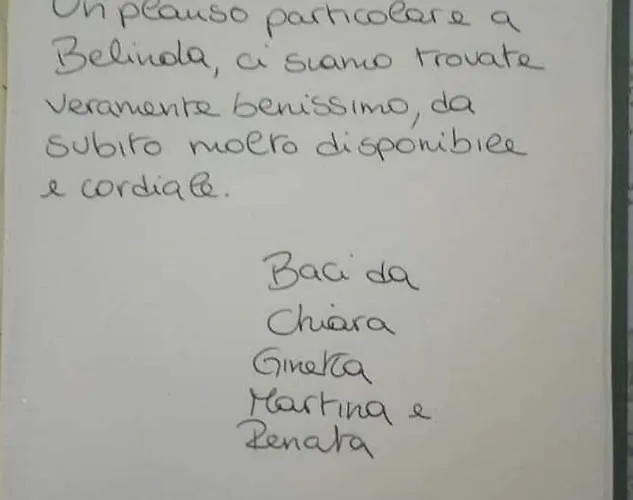 Un plauso particolare a
Belinda, ci siamo trovate
veramente benissimo, da
subito molto disponibile
e cordiale.
Baci da
Chiara
Ginetta
Martina e
Renata